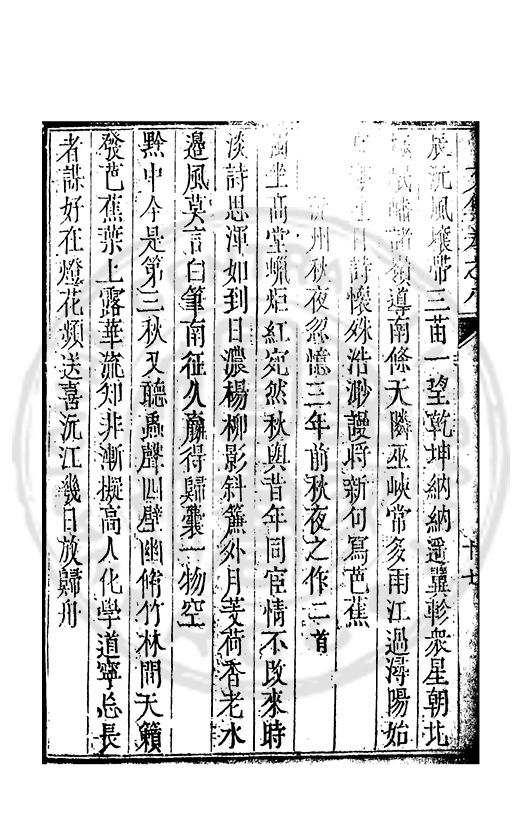 辰沅風壤帶三苗一望乾坤納納遥翼軫衆星朝北
岷嶓諸嶺導南條天隣巫峽常多雨江過潯陽始
詩懷殊浩渺謾將新句寫芭蕉
州秋夜忽憶三年前秋夜之作二首
坐高堂蠟炬紅宛然秋與昔年同宦情不改來時
淡詩思渾如到日濃楊柳影斜簾外月芰荷香老水
邊風莫言白筆南征久贏得歸囊一物空
黔中今是第三秋又聽蟲聲四壁幽脩竹林間天籟
發芭蕉葉上露華流知非漸擬高人化學道寧忘長
者謀好在燈花頻送喜沅江幾日放歸舟